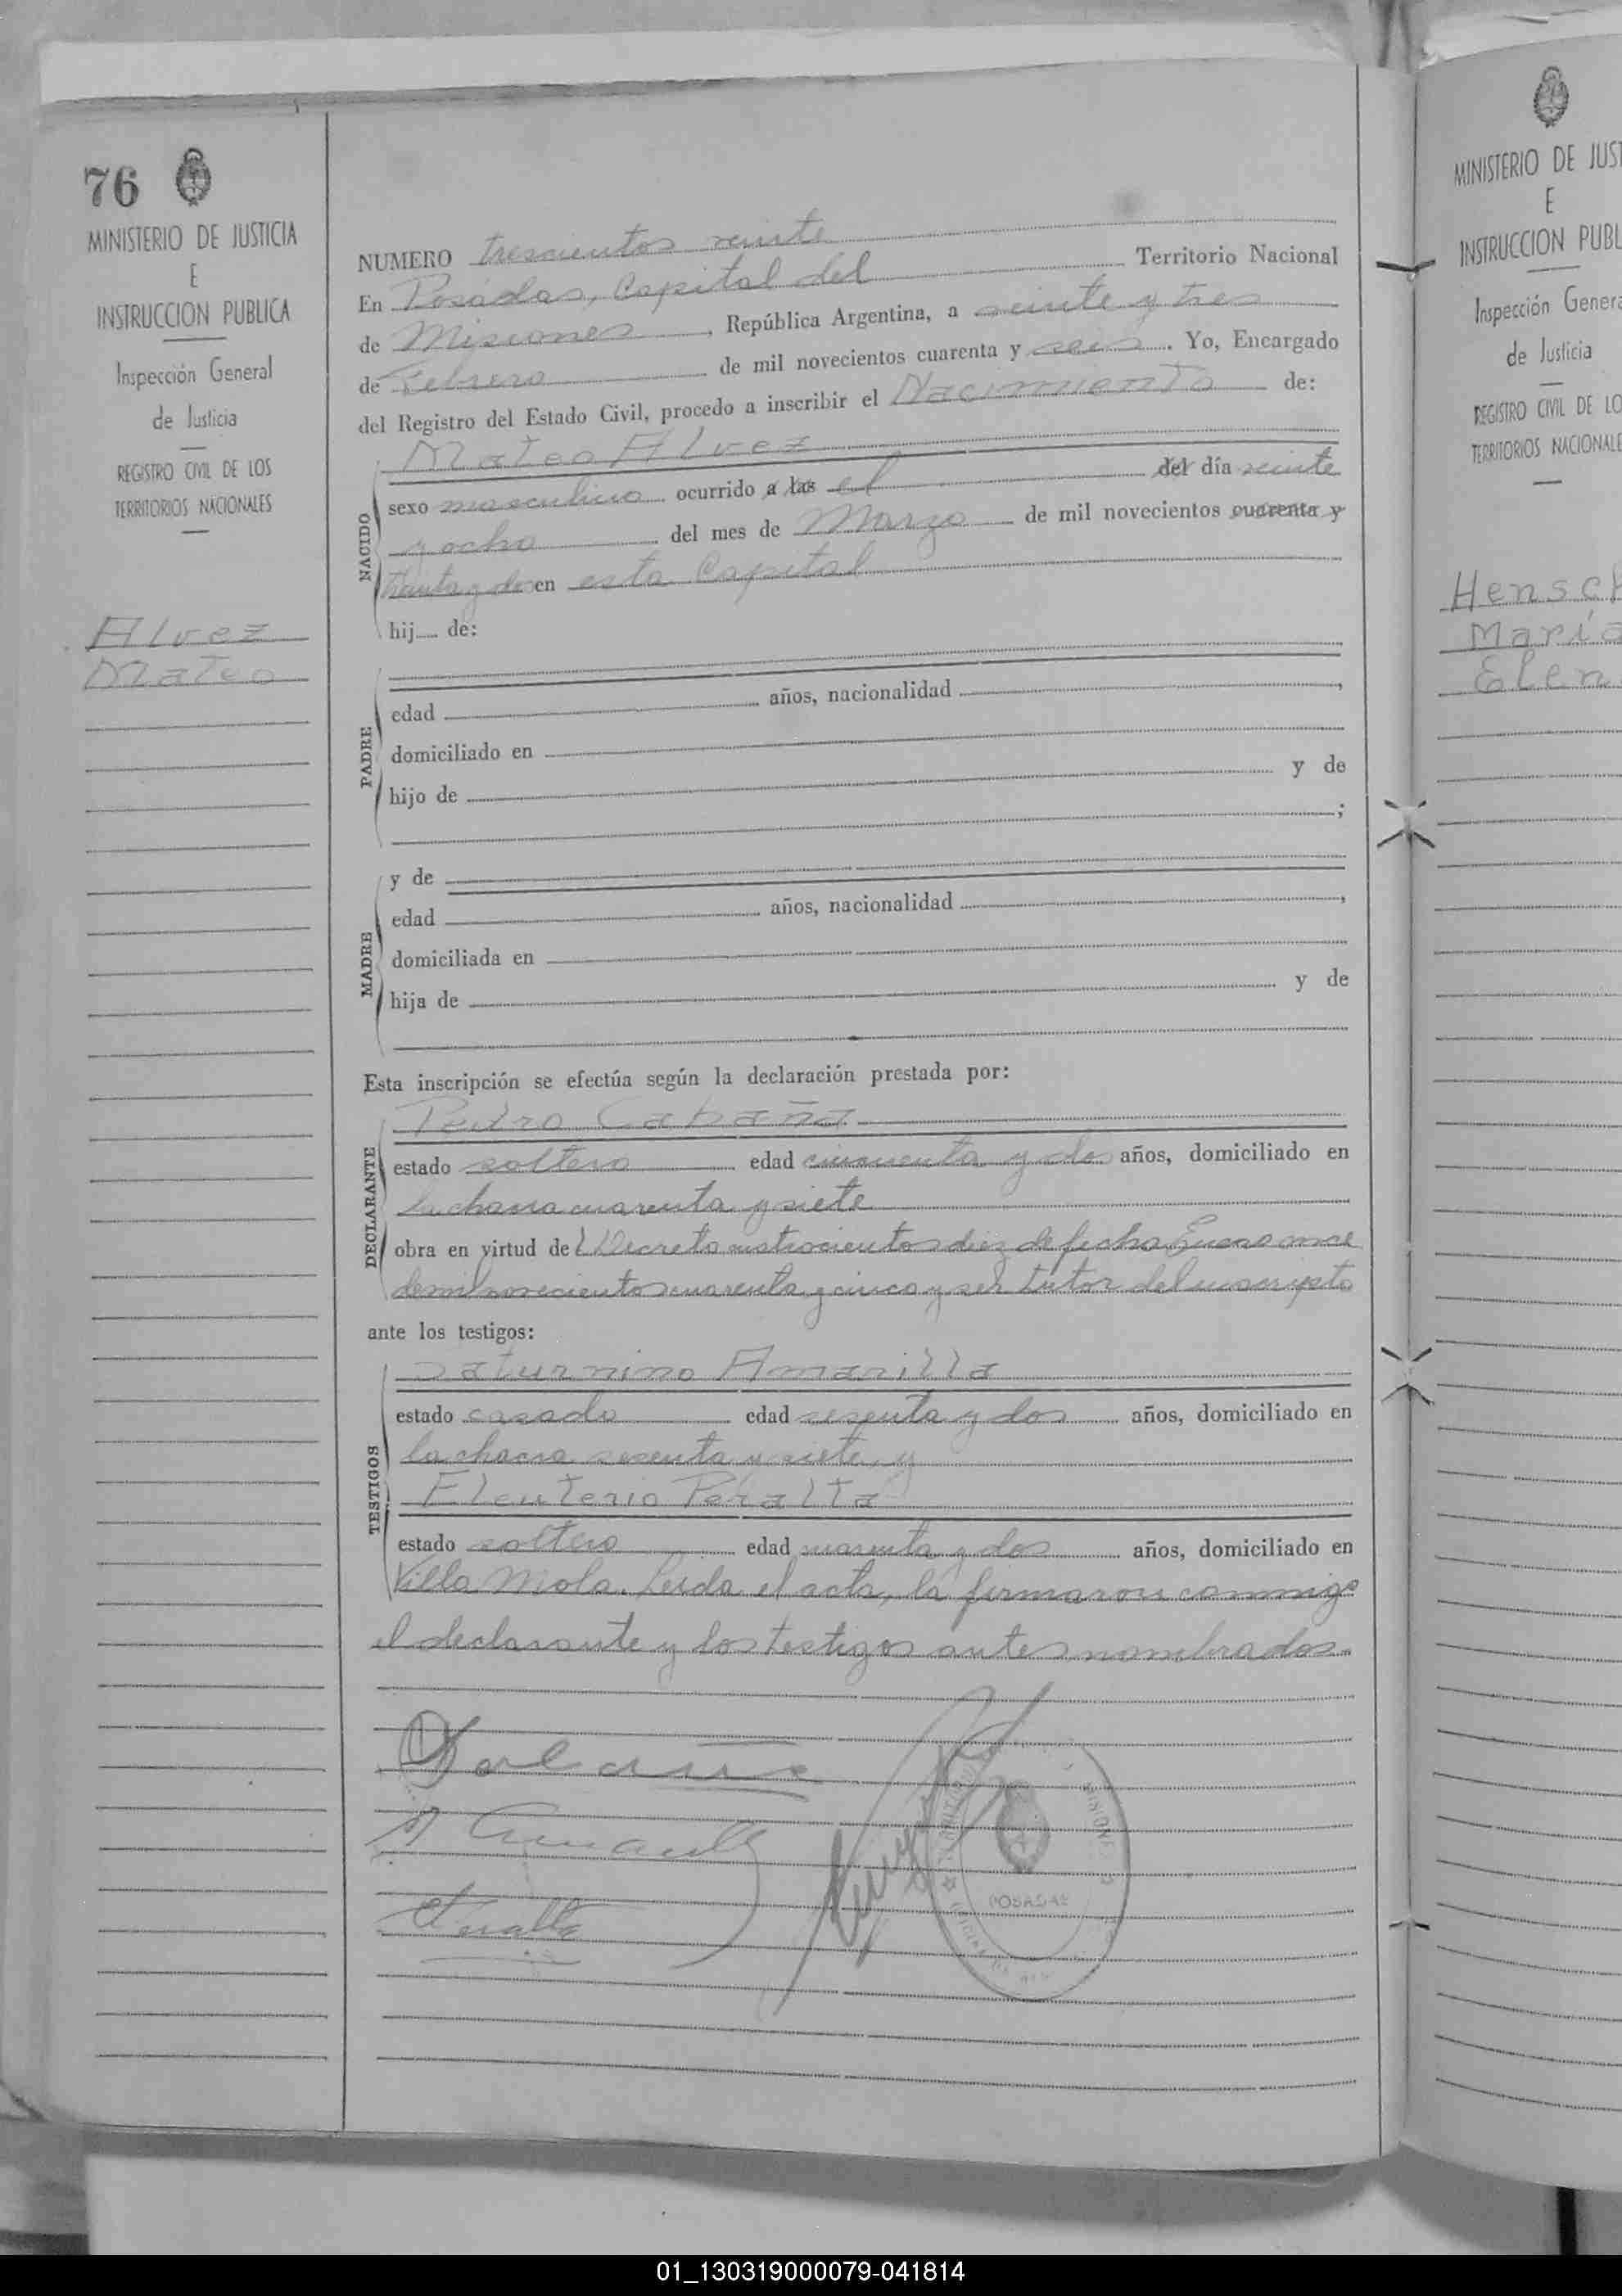 76
MINISTERIO DE JUSTICIA
E
INSTRUCCION PUBLICA
Inspección General
de Justicia
REGISTRO CIVIL DE LOS
TERRITORIOS NACIONALES
Alvez
Mateo
NUMERO trescientos veinte
En Posadas, Capital del Territorio Nacional
de Misiones, República Argentina, a veinte y tres
de Febrero de mil novecientos cuarenta y seis. Yo, Encargado
del Registro del Estado Civil, procedo a inscribir el Nacimiento de:
Mateo Alvez
NACIDO
sexo masculino ocurrido a las el del día veinte
y ocho del mes de Marzo de mil novecientos cuarenta y
treinta y dos en esta Capital
hij de:
PADRE
edad años, nacionalidad ,
domiciliado en
hijo de y de
;
MADRE
y de
edad años, nacionalidad ,
domiciliada en
hija de y de
Esta inscripción se efectúa según la declaración prestada por:
DECLARANTE
Pedro Cabaña
estado soltero edad cincuenta y dos años, domiciliado en
la chacra cuarenta y siete
obra en virtud del Decreto cuatrocientos diez de fecha Enero once
de mil novecientos cuarenta y cinco y ser tutor del inscripto
ante los testigos:
TESTIGOS
Saturnino Amarilla
estado casado edad sesenta y dos años, domiciliado en
la chacra sesenta y siete, y
Eleuterio Peralta
estado soltero edad cuarenta y dos años, domiciliado en
Villa Mola. Leida el acta, la firmaron conmigo
el declarante y los testigos antes nombrados.
POSADAS
MINISTERIO DE JUST
E
INSTRUCCION PUBL
Inspección Genera
de Justicia
REGISTRO CIVIL DE LO
TERRITORIOS NACIONALE
Hensch
María
Elen
01_130319000079-041814